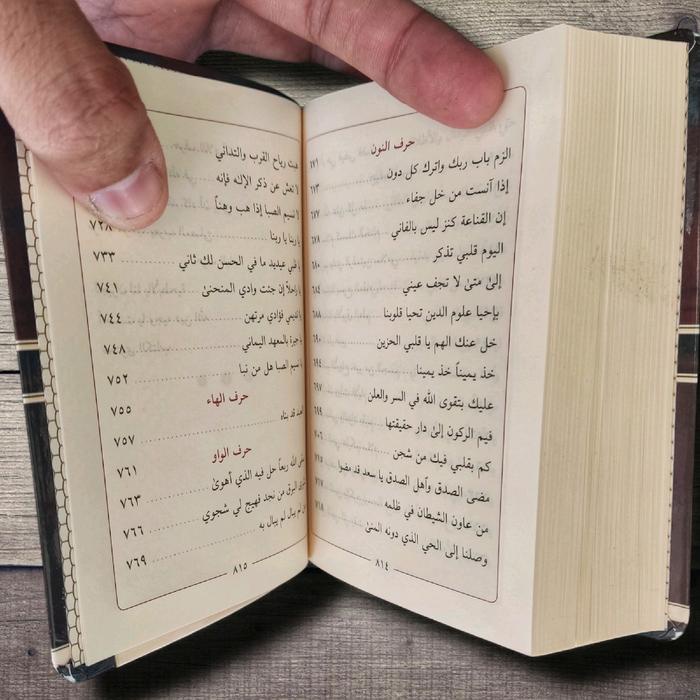 حرف النون
الزم باب ربك واترك كل دون ٦٧١
إذا آنست من خل جفاء ٦٧٣
إن القناعة كنز ليس بالفاني ٦٧٧
اليوم قلبي تذكر ٦٧٨
إلىٰ متىٰ لا تجف عيني ٦٨٠
بإحيا علوم الدين تحيا قلوبنا
خل عنك الهم يا قلبي الحزين
خذ يميناً خذ يمينا
عليك بتقوى الله في السر والعلن
فيم الركون إلىٰ دار حقيقتها
كم بقلبي فيك من شجن
مضى الصدق وأهل الصدق يا سعد قد مضوا
من عاون الشيطان في ظلمه
وصلنا إلى الحي الذي دونه المنىٰ
٨١٤
هبت رياح القرب والتداني
لا تعش عن ذكر الإلـٰه فإنه
نسيم الصبا إذا هب وهناً
يا ربنا يا ربنا ٧٢٨
عيديد ما في الحسن لك ثاني ٧٣٣
إن جئت وادي المنحنىٰ ٧٤١
فؤادي مرتهن ٧٤٤
جيرة بالمعهد اليماني ٧٤٨
نسيم الصبا هل من نبا ٧٥٢
حرف الهاء ٧٥٥
قد بناه ٧٥٧
حرف الواو ٧٦١
الله ربعاً حل فيه الذي أهوىٰ ٧٦٣
البرق من نجد فهيج لي شجوي ٧٦٦
لم يبال لم يبال به ٧٦٩
٨١٥